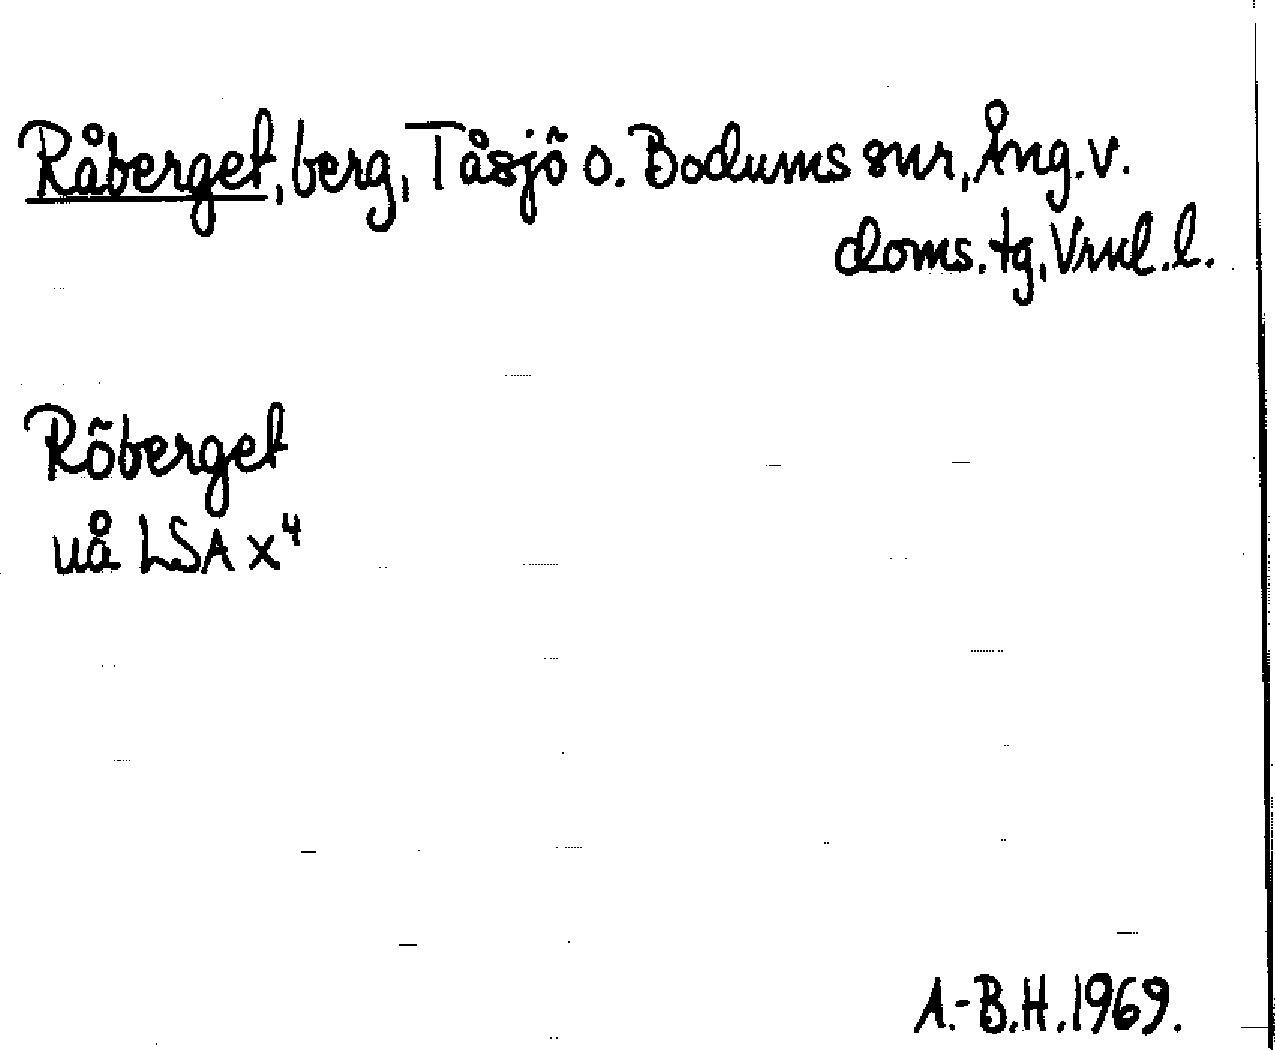 Råberget, berg, Tåsjö o. Bodums snr, Ång. v.
doms. tg, Vrnl. l.
Röberget
uå LSA x⁴
A.-B.H. 1969.